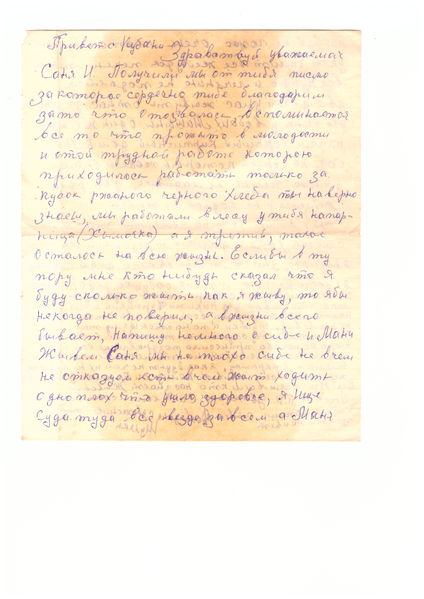 Привет с Кубани
Здравствуй уважаемая
Саня И. Получили мы от тибя писмо
за которое сердечно тибе благодарим
за то что отозвалась, вспоминается
все то что прожыто в молодости
и о той трудной работе которою
приходилось работать только за
кусок ржаного черного хлеба ты наверно
знаеш, мы работали в лесу у тибя напар-
ница (Хымочка) а я против, такое
осталось на всю жызнь. Если бы в ту
пору мне кто нибудь сказал что я
буду сколько жыть как я жыву, то я бы
некогда не поверил, а в жизни всего
бывает, напишу немного о сибе и Мани
Жывем Саня мы не плохо сибе не в чем
не отказуем есть в чем жыть ходить
одно плохо что ушло здоровье, я ище
суда туда все везде за всем а Маня